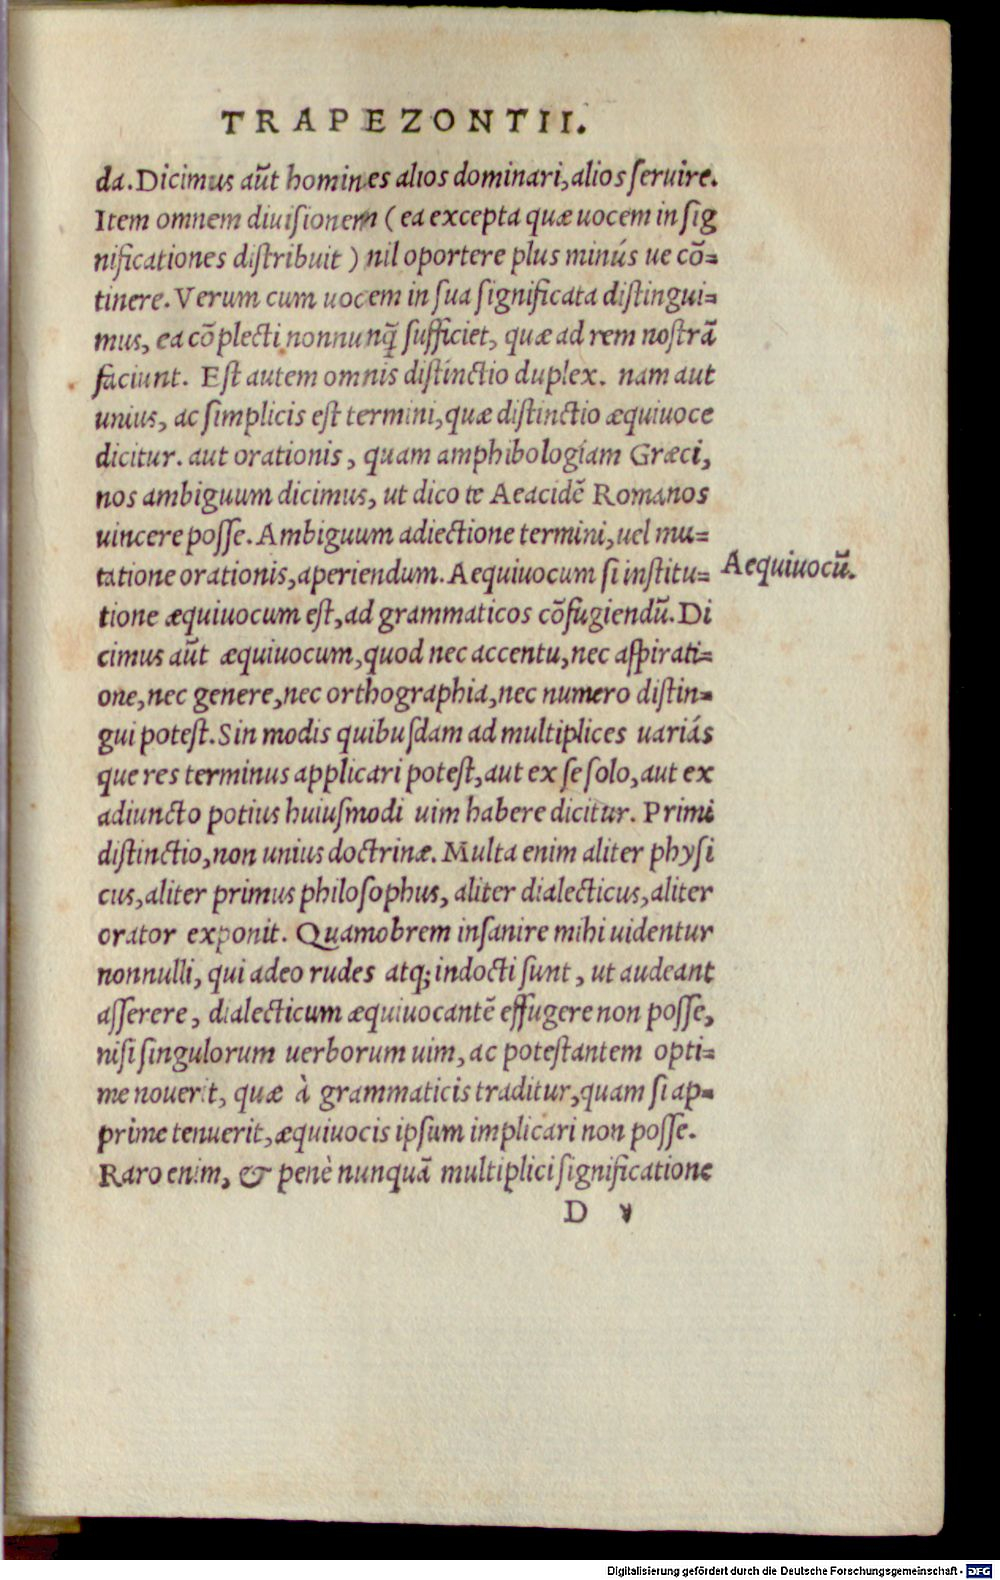 TRAPEZONTII.
da. Dicimus aũt homines alios dominari, alios ſeruire.
Item omnem diuiſionem (ea excepta quæ uocem in ſig
nificationes diſtribuit) nil oportere plus minúſ ue cõ=
tinere. Verum cum uocem in ſua ſignificata diſtingui=
mus, ea cõplecti nonnunq̃ ſufficiet, quæ ad rem noſtrã
faciunt. Eſt autem omnis diſtinctio duplex. nam aut
unius, ac ſimplicis eſt termini, quæ diſtinctio æquiuoce
dicitur. aut orationis, quam amphibologiam Græci,
nos ambiguum dicimus, ut dico te Aeacidẽ Romanos
uincere poſſe. Ambiguum adiectione termini, uel mu=
tatione orationis, aperiendum. Aequiuocum ſi inſtitu=
Aequiuocũ.
tione æquiuocum eſt, ad grammaticos cõfugiendũ. Di
cimus aũt æquiuocum, quod nec accentu, nec aſpirati=
one, nec genere, nec orthographia, nec numero diſtin=
gui poteſt. Sin modis quibuſdam ad multiplices uariás
que res terminus applicari poteſt, aut ex ſe ſolo, aut ex
adiuncto potius huiuſmodi uim habere dicitur. Primi
diſtinctio, non unius doctrinæ. Multa enim aliter phyſi
cus, aliter primus philoſophus, aliter dialecticus, aliter
orator exponit. Quamobrem inſanire mihi uidentur
nonnulli, qui adeo rudes atq; indocti ſunt, ut audeant
aſſerere, dialecticum æquiuocantẽ effugere non poſſe,
niſi ſingulorum uerborum uim, ac poteſtantem opti=
me nouerit, quæ à grammaticis traditur, quam ſi ap=
prime tenuerit, æquiuocis ipſum implicari non poſſe.
Raro enim, & penè nunquã multiplici ſignificatione
D v
Digitalisierung gefördert durch die Deutsche Forschungsgemeinschaft - DFG